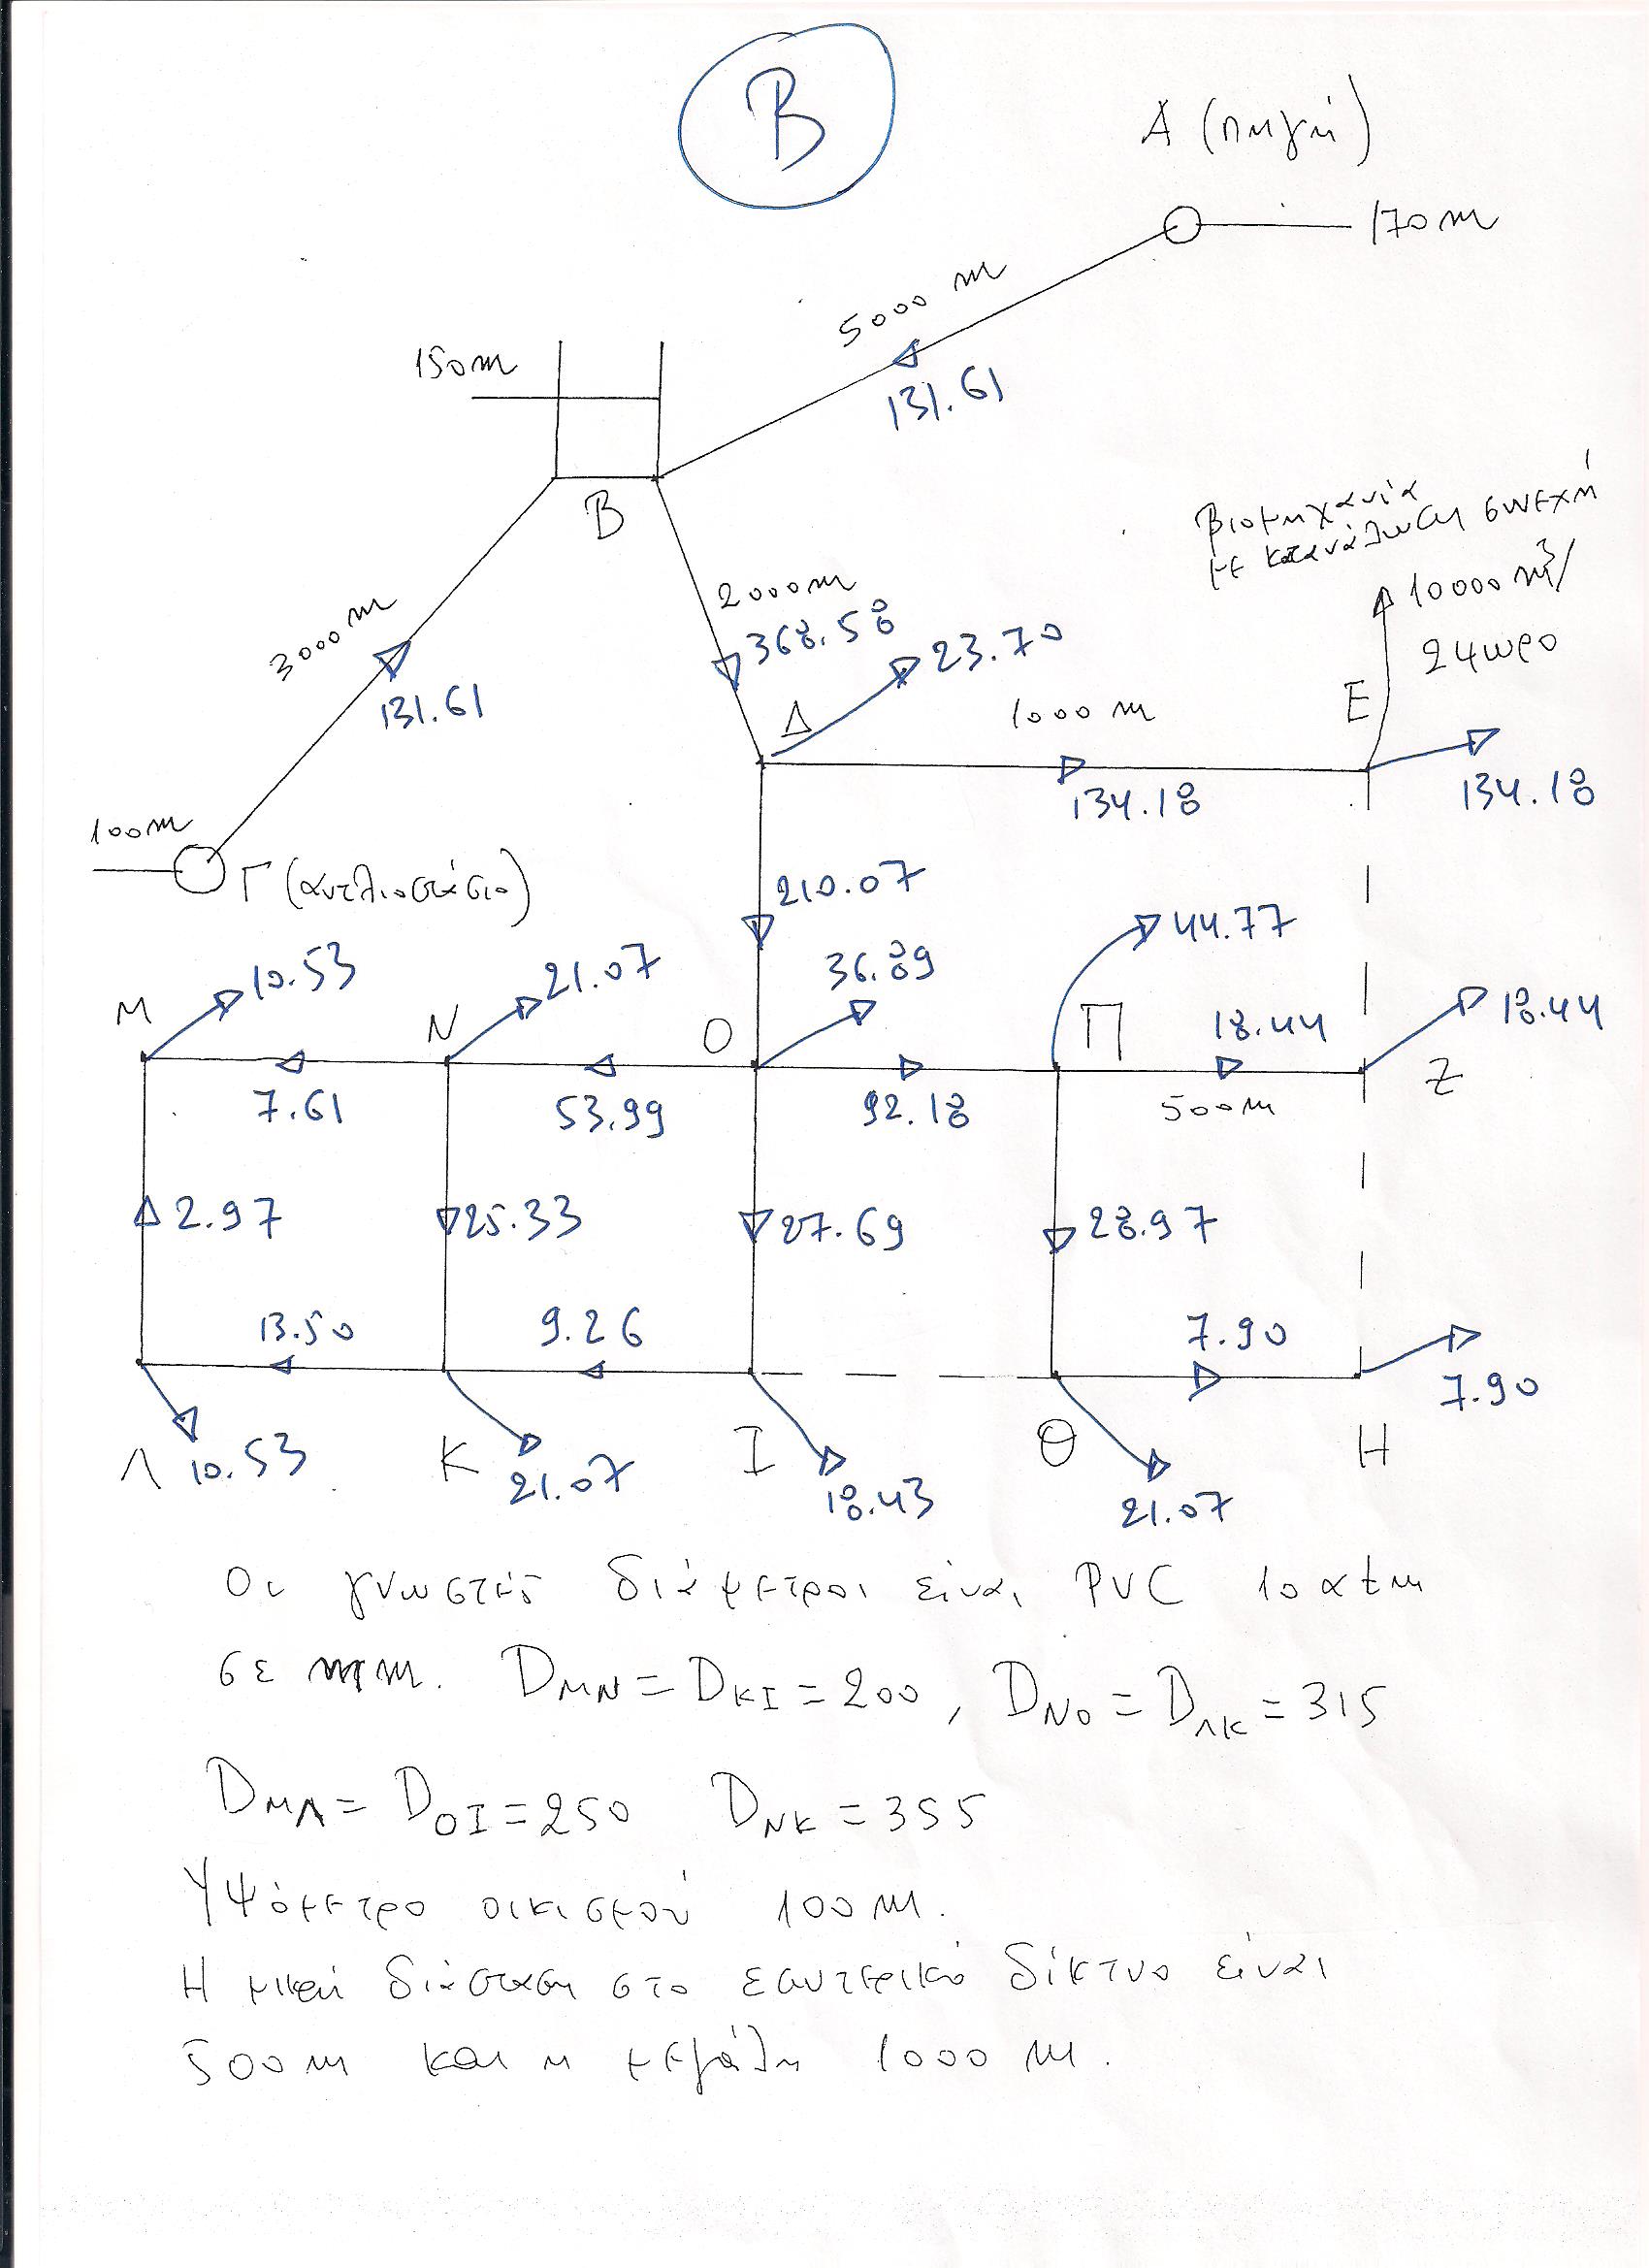 Β
Α (πηγή)
170 m
5000 m
131.61
150 m
Β
βιομηχανία
με κατανάλωση συνεχή
10000 m³/
24ωρο
2000 m
368.58
23.70
3000 m
131.61
Δ
1000 m
Ε
134.18
134.18
100 m
Γ (αντλιοστάσιο)
210.07
44.77
Μ
10.53
Ν
21.07
Ο
36.89
Π
18.44
18.44
Ζ
7.61
53.99
92.18
500 m
2.97
25.33
27.69
28.97
13.50
9.26
7.90
7.90
Λ
10.53
Κ
21.07
Ι
18.43
Θ
21.07
Η
Οι γνωστές διάμετροι είναι PVC 10 atm
σε mm. DΜΝ = DΚΙ = 200, DΝΟ = DΛΚ = 315
DΜΛ = DΟΙ = 250 DΝΚ = 355
Υψόμετρο οικισμού 100 m.
Η μικρή διάσταση στο εσωτερικό δίκτυο είναι
500 m και η μεγάλη 1000 m.